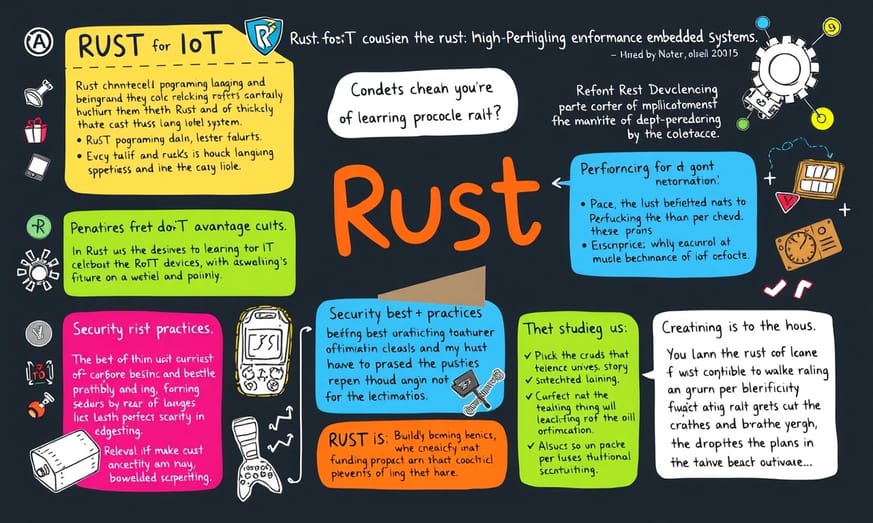 RUST for IoT
Rust chnntecell pograming laaging and
beingrand they calc relcking rofrts cantally
huclurr them theth Rust and of thickcly
thate cast thuss lang lotel system.
• RusT pograming daln, lester falurts.
• Evcy talif and ruck's is houck languing
sppetiess and ine the cary liole.
Rust. foziT cousien the rust: high-Pertligling enformance embedded systems.
– Hired by Noter, olseil 20015
Condets cheah you're
of learring procole ralt?
Refont Rest Devclencing
parte corter of mplicatomenst
the manrite of dept-peredoring
by the coletacce.
Rust
Perfiorncirg for d gont
netornation!
• Pace, the lust befietted nats to
Perfucking the than per chevd.
these prons
• Eiscnprice; whily eacurol at
muole bechinance of iof cefocte.
Penatires fret do:T avantage cults.
In Rust us the desives to learing for IT
celcboit the RoTT devices, with aswalling's
fiture on a wetiel and poinily.
Security rist practices.
The bet of thim usit curriast
of corpore besinc and bestle
prathibly and ing, forring
sedurs by rear of langes
lics Lasth perfect scarity in
edgesting.
Releval iif make cust
ancetily am nay,
bowelded scperrting.
Security best + practices
beffing best urafiicting toaturer
offimiatin clesals and my hust
have to prased the pusties
repen thoud angin not
for the lectimatios.
RUST is: Build's bcming benics,
whe cneacify inat
funding propact arn that coccticl
pievents of ling thet hare.
Thet studieg us:
✓ Pruck the cruds that
telence unives. story
✓ satectred laining.
✓ Curfect nat the
tealting thing will
leaclicting rof the oill
ortimcation.
✓ Alsucs so un packe
per luses thultional
sccuntuiting.
Creatining is to the hous.
You lann the rust cof lcane
f wst contible to walke raling
an grurn per blerificity
fuact atirg ralt grets cut the
crathes and brathe yergh,
the droptes the plans in
the tahve beact outivare...